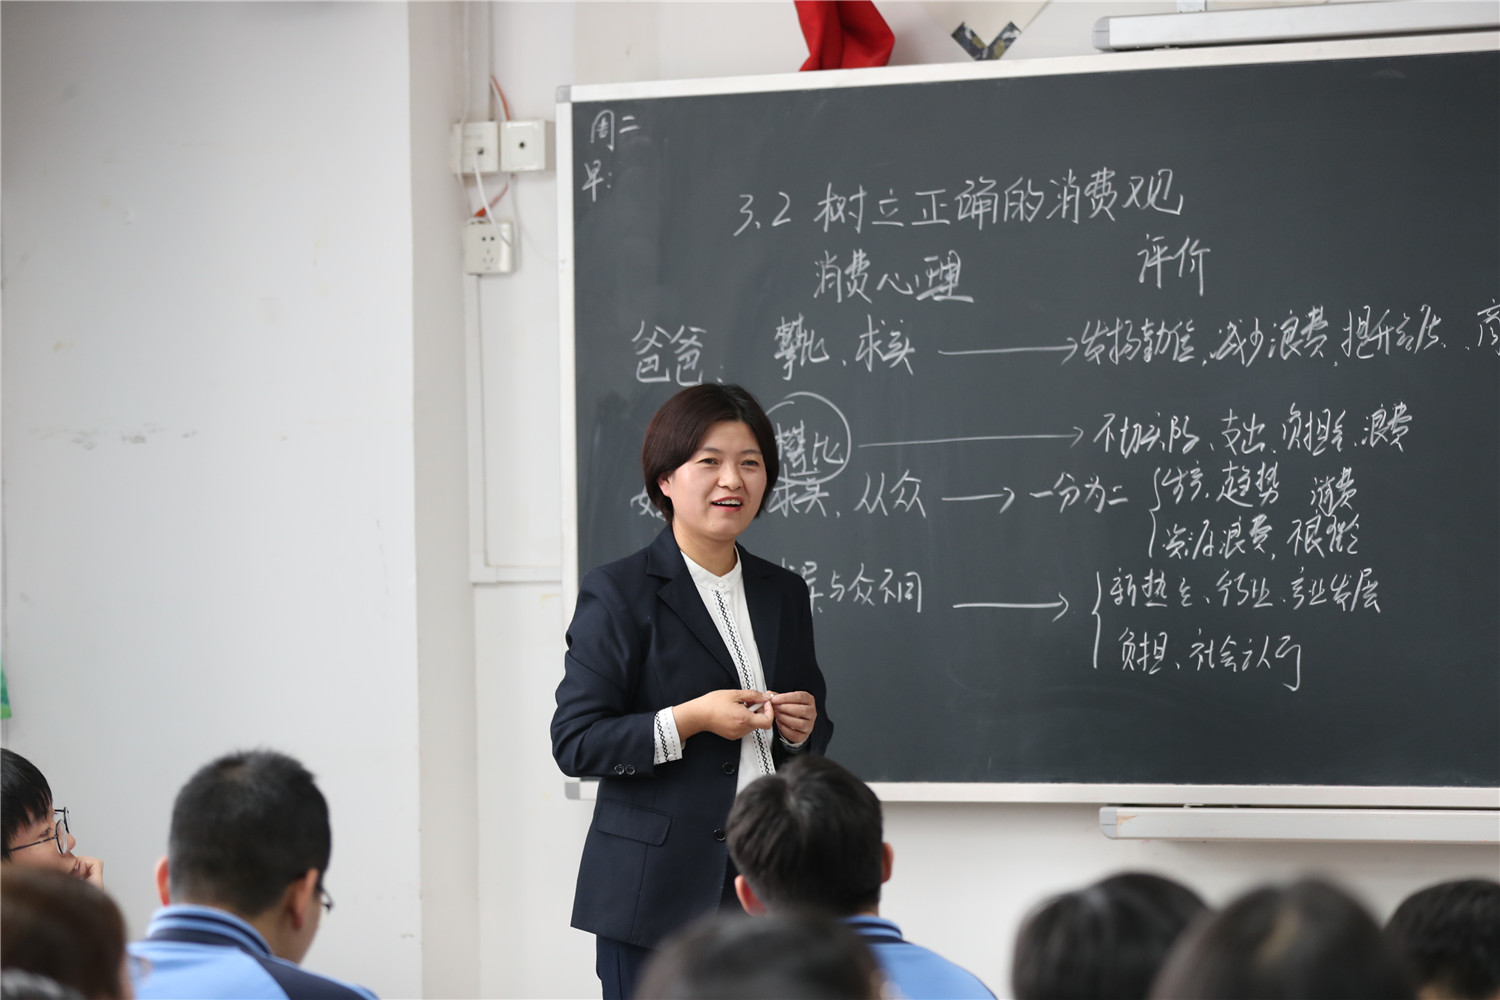 周二
早:
3.2 树立正确的消费观
消费心理 评价
爸爸: 攀比、求实 → 发扬勤俭、减少浪费,提升
攀比 → 支出、负担、浪费
求实、从众 → 一分为二 { 趋势 消费
资源浪费,
与众不同 → { 新热点、行业、产业发展
负担、社会认可